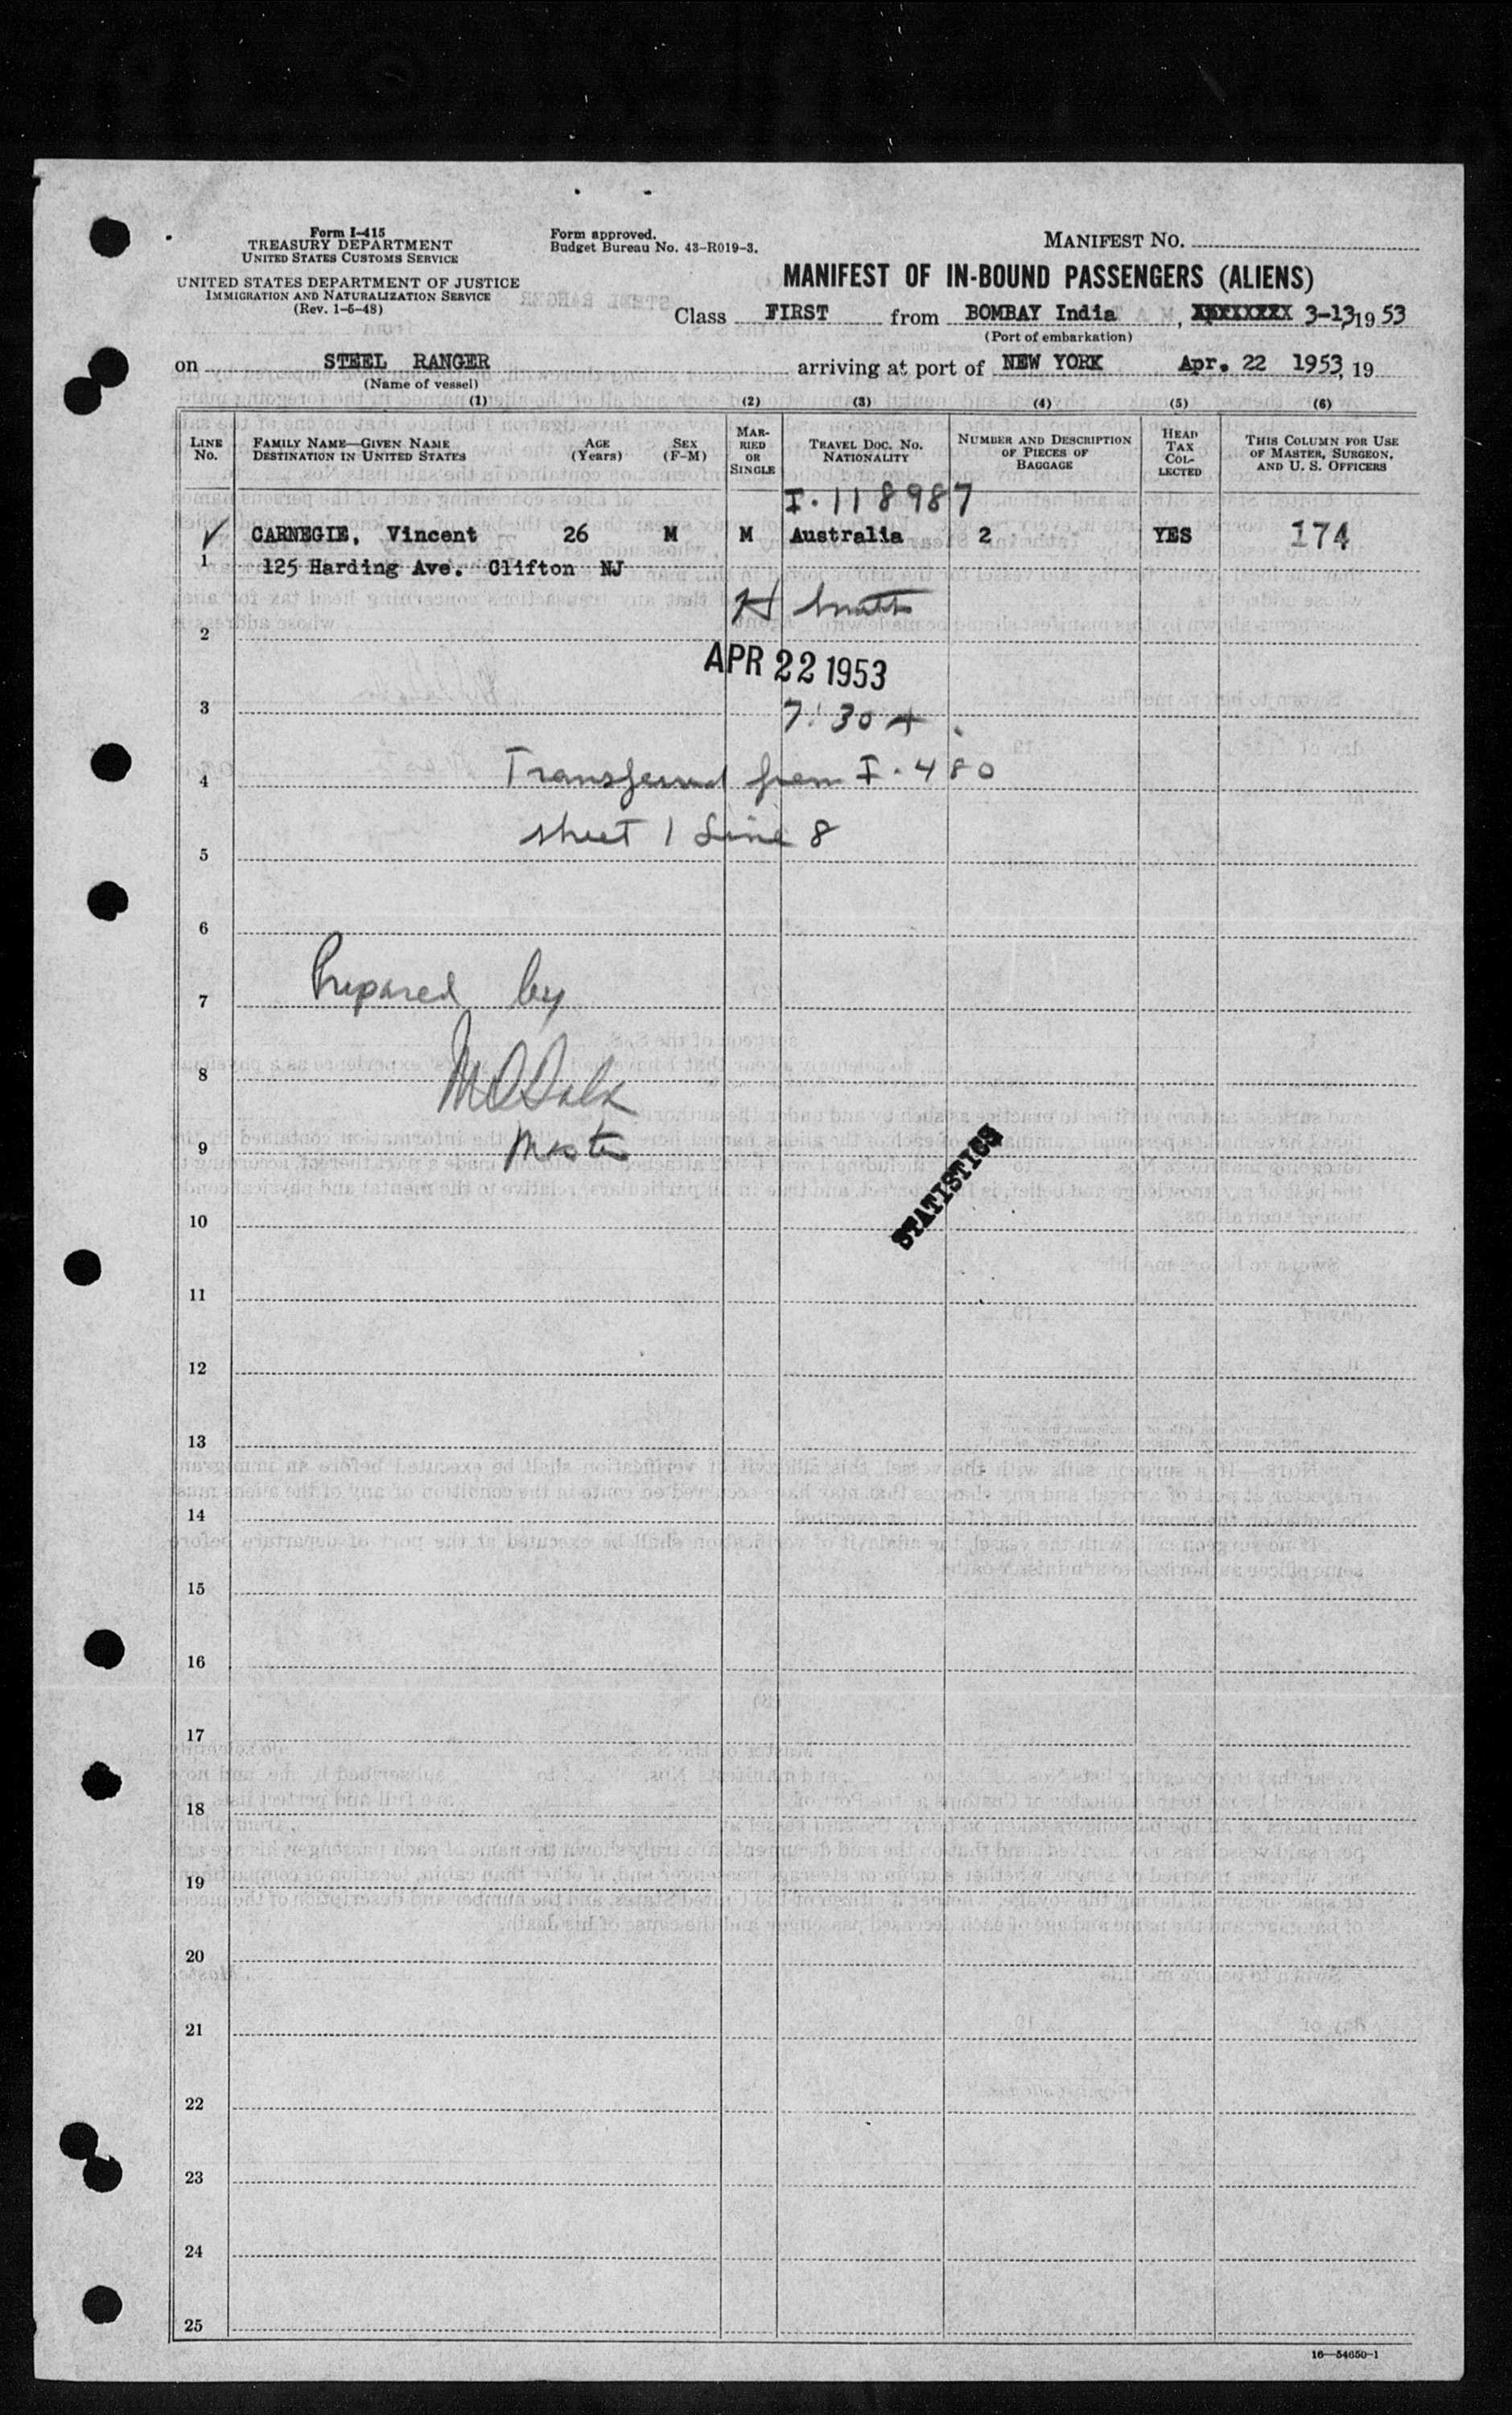 Form I-415
TREASURY DEPARTMENT
UNITED STATES CUSTOMS SERVICE
UNITED STATES DEPARTMENT OF JUSTICE
IMMIGRATION AND NATURALIZATION SERVICE
(Rev. 1-5-48)
Form approved.
Budget Bureau No. 43-R019-3.
MANIFEST NO.
MANIFEST OF IN-BOUND PASSENGERS (ALIENS)
Class FIRST from BOMBAY India, 3-13 1953
(Port of embarkation)
on STEEL RANGER arriving at port of NEW YORK Apr. 22 1953, 19
(Name of vessel)
(1) (2) (3) (4) (5) (6)
LINE No. FAMILY NAME—GIVEN NAME DESTINATION IN UNITED STATES AGE (Years) SEX (F-M) MARRIED OR SINGLE TRAVEL DOC. NO. NATIONALITY NUMBER AND DESCRIPTION OF PIECES OF BAGGAGE HEAD TAX COLLECTED THIS COLUMN FOR USE OF MASTER, SURGEON, AND U. S. OFFICERS
I-118987
1 CARNEGIE, Vincent 26 M M Australia 2 YES 174
125 Harding Ave. Clifton NJ
2 H Smith
APR 22 1953
3 7:30 A.
4 Transferred from I-480
5 sheet 1 Line 8
6
7 Prepared by
8
9 Master
STATISTICS
10
11
12
13
14
15
16
17
18
19
20
21
22
23
24
25
16—54650-1